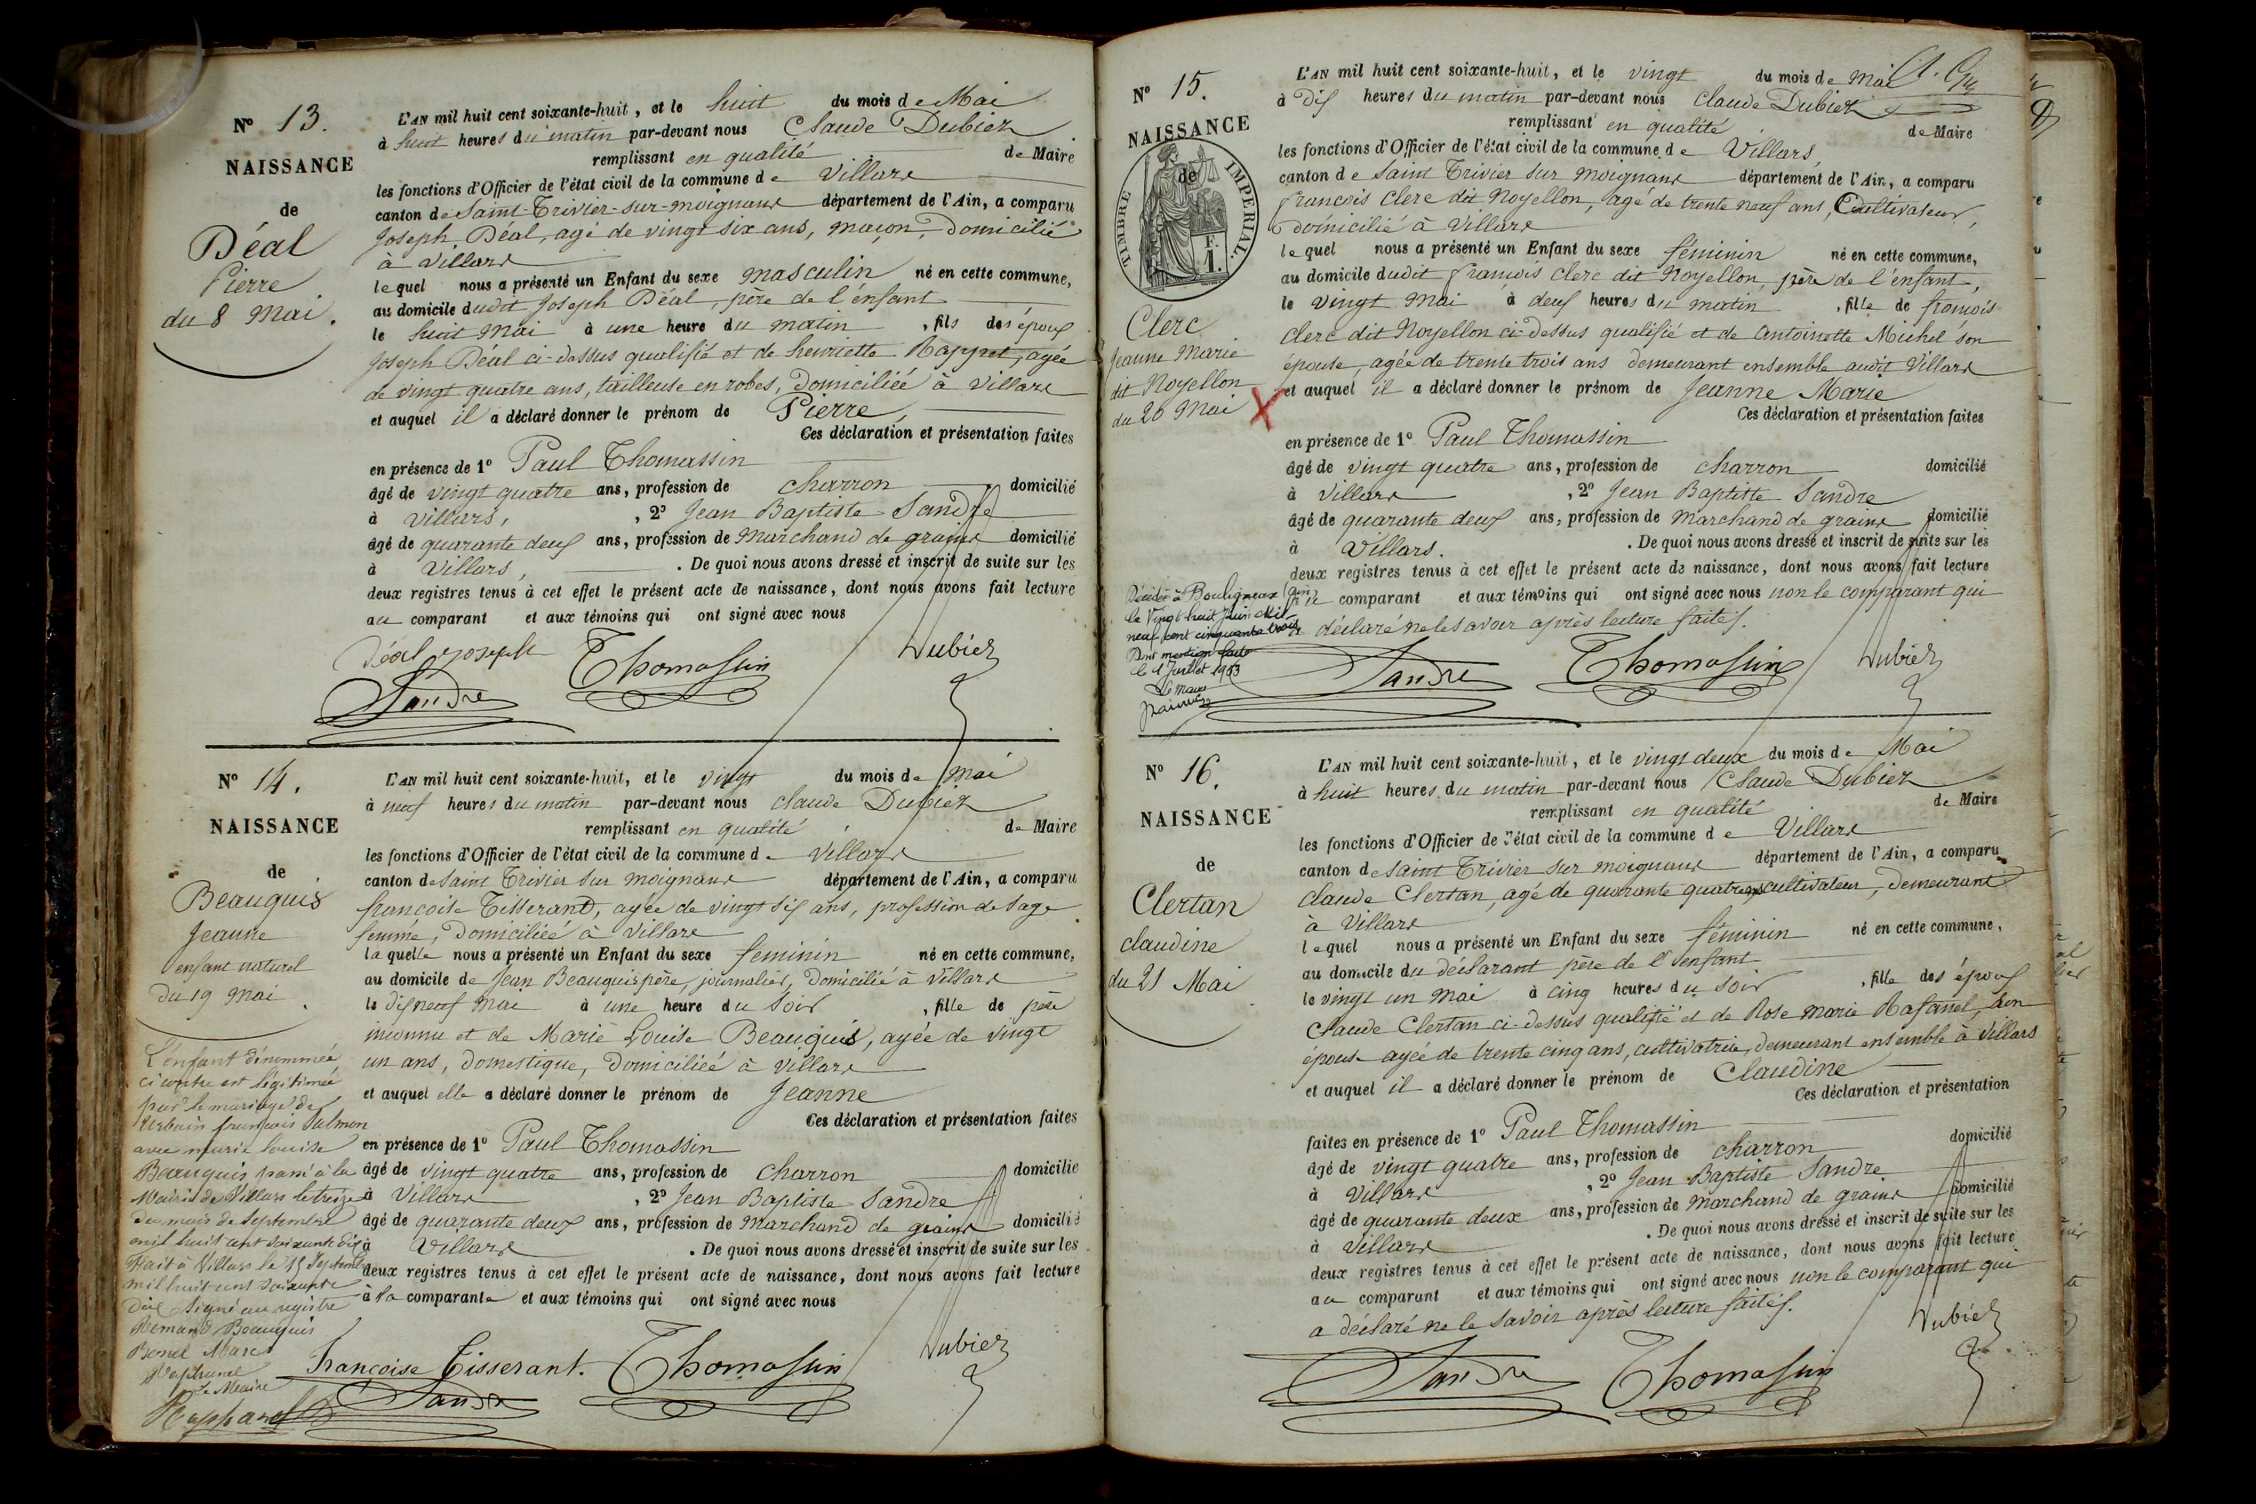 Nº 13.
NAISSANCE
de
Déal
Pierre
du 8 Mai.
L'AN mil huit cent soixante-huit, et le huit du mois de Mai
à huit heures du matin par-devant nous Claude Dubiez
remplissant en qualité de Maire
les fonctions d'Officier de l'état civil de la commune de Villars
canton de Saint-Trivier-sur-moignans département de l'Ain, a comparu
Joseph Déal, agé de vingt six ans, maçon, Domicilié
à Villars
lequel nous a présenté un Enfant du sexe masculin né en cette commune,
au domicile dudit Joseph Déal, père de l'enfant
le huit Mai à une heure du matin, fils des époux
Joseph Déal ci-dessus qualifié et de henriette agée
de vingt quatre ans, tailleuse en robes, Domiciliée à Villars
et auquel il a déclaré donner le prénom de Pierre,
Ces déclaration et présentation faites
en présence de 1º Paul Thomassin
âgé de vingt quatre ans, profession de charron domicilié
à Villars, , 2º Jean Baptiste Sandre
âgé de quarante deux ans, profession de Marchand de grains domicilié
à Villars, . De quoi nous avons dressé et inscrit de suite sur les
deux registres tenus à cet effet le présent acte de naissance, dont nous avons fait lecture
au comparant et aux témoins qui ont signé avec nous
Déal joseph Thomassin Dubiez
Sandre
Nº 14.
NAISSANCE
de
Beauquis
Jeanne
enfant naturel
du 19 Mai
L'enfant dénommée
ci contre est légitimée
par le mariage de
françois Salmon
avec marie louise
Beauquis passé à la
Mairie de Villars le treize
du mois de Septembre
mil huit cent soixante dix
Fait à Villars le 15 Septembre
mil huit cent soixante
dix Signé au registre
Beauquis
Le Maire
L'AN mil huit cent soixante-huit, et le vingt du mois de Mai
à neuf heures du matin par-devant nous Claude Dubiez
remplissant en qualité de Maire
les fonctions d'Officier de l'état civil de la commune de Villars
canton de Saint Trivier sur moignans département de l'Ain, a comparu
françoise Tisserand, agée de vingt six ans, profession de sage
femme, Domiciliée à Villars
laquelle nous a présenté un Enfant du sexe féminin né en cette commune,
au domicile de Jean Beauquis père, journalier, Domicilié à Villars
le dix neuf Mai à une heure du Soir, fille de père
inconnu et de Marie Louise Beauquis, agée de vingt
un ans, Domestique, Domiciliée à Villars
et auquel elle a déclaré donner le prénom de Jeanne
Ces déclaration et présentation faites
en présence de 1º Paul Thomassin
âgé de vingt quatre ans, profession de charron domicilié
à Villars, 2º Jean Baptiste Sandre
âgé de quarante deux ans, profession de Marchand de grains domicilié
à Villars. De quoi nous avons dressé et inscrit de suite sur les
deux registres tenus à cet effet le présent acte de naissance, dont nous avons fait lecture
à la comparante et aux témoins qui ont signé avec nous
Françoise Tisserant. Thomassin Dubiez
Sandre
Nº 15.
NAISSANCE
de
TIMBRE IMPÉRIAL.
F.
1.
Clerc
Jeanne Marie
dit Noyellon
du 20 Mai
X
Décédée à Bouligneux (Ain)
le Vingt huit Juin mil
neuf cent cinquante trois
Dont mention faite
le 1 Juillet 1953
Le Maire
L'AN mil huit cent soixante-huit, et le vingt du mois de Mai
à dix heures du matin par-devant nous Claude Dubiez
remplissant en qualité de Maire
les fonctions d'Officier de l'état civil de la commune de Villars,
canton de Saint Trivier sur moignans département de l'Ain, a comparu
francois Clerc dit Noyellon, agé de trente neuf ans, Cultivateur,
domicilié à Villars
lequel nous a présenté un Enfant du sexe féminin né en cette commune,
au domicile dudit françois Clerc dit Noyellon père de l'enfant,
le vingt Mai à deux heures du matin, fille de françois
Clerc dit Noyellon ci-dessus qualifié et de Antoinette Michel son
épouse, agée de trente trois ans demeurant ensemble audit Villars
et auquel il a déclaré donner le prénom de Jeanne Marie
Ces déclaration et présentation faites
en présence de 1º Paul Thomassin
âgé de vingt quatre ans, profession de charron domicilié
à Villars, 2º Jean Baptiste Sandre
âgé de quarante deux ans, profession de Marchand de grains domicilié
à Villars. . De quoi nous avons dressé et inscrit de suite sur les
deux registres tenus à cet effet le présent acte de naissance, dont nous avons fait lecture
comparant et aux témoins qui ont signé avec nous non le comparant qui
a déclaré ne le savoir après lecture faite.
Sandre Thomassin Dubiez
Nº 16.
NAISSANCE
de
Clertan
claudine
du 21 Mai
L'AN mil huit cent soixante-huit, et le vingt deux du mois de Mai
à huit heures du matin par-devant nous Claude Dubiez
remplissant en qualité de Maire
les fonctions d'Officier de l'état civil de la commune de Villars
canton de Saint Trivier sur moignans département de l'Ain, a comparu
claude Clertan, agé de quarante quatre ans cultivateur, demeurant
à Villars
lequel nous a présenté un Enfant du sexe féminin né en cette commune,
au domicile du déclarant père de l'enfant
le vingt un Mai à cinq heures du soir, fille des époux
Claude Clertan ci-dessus qualifié et de Rose Marie Rafanel, son
épouse agée de trente cinq ans, cultivatrice, demeurant ensemble à Villars
et auquel il a déclaré donner le prénom de Claudine
Ces déclaration et présentation
faites en présence de 1º Paul Thomassin
âgé de vingt quatre ans, profession de charron domicilié
à Villars, 2º Jean Baptiste Sandre
âgé de quarante deux ans, profession de Marchand de grains domicilié
à Villars. De quoi nous avons dressé et inscrit de suite sur les
deux registres tenus à cet effet le présent acte de naissance, dont nous avons fait lecture
au comparant et aux témoins qui ont signé avec nous non le comparant qui
a déclaré ne le savoir après lecture faite.
Sandre Thomassin Dubiez